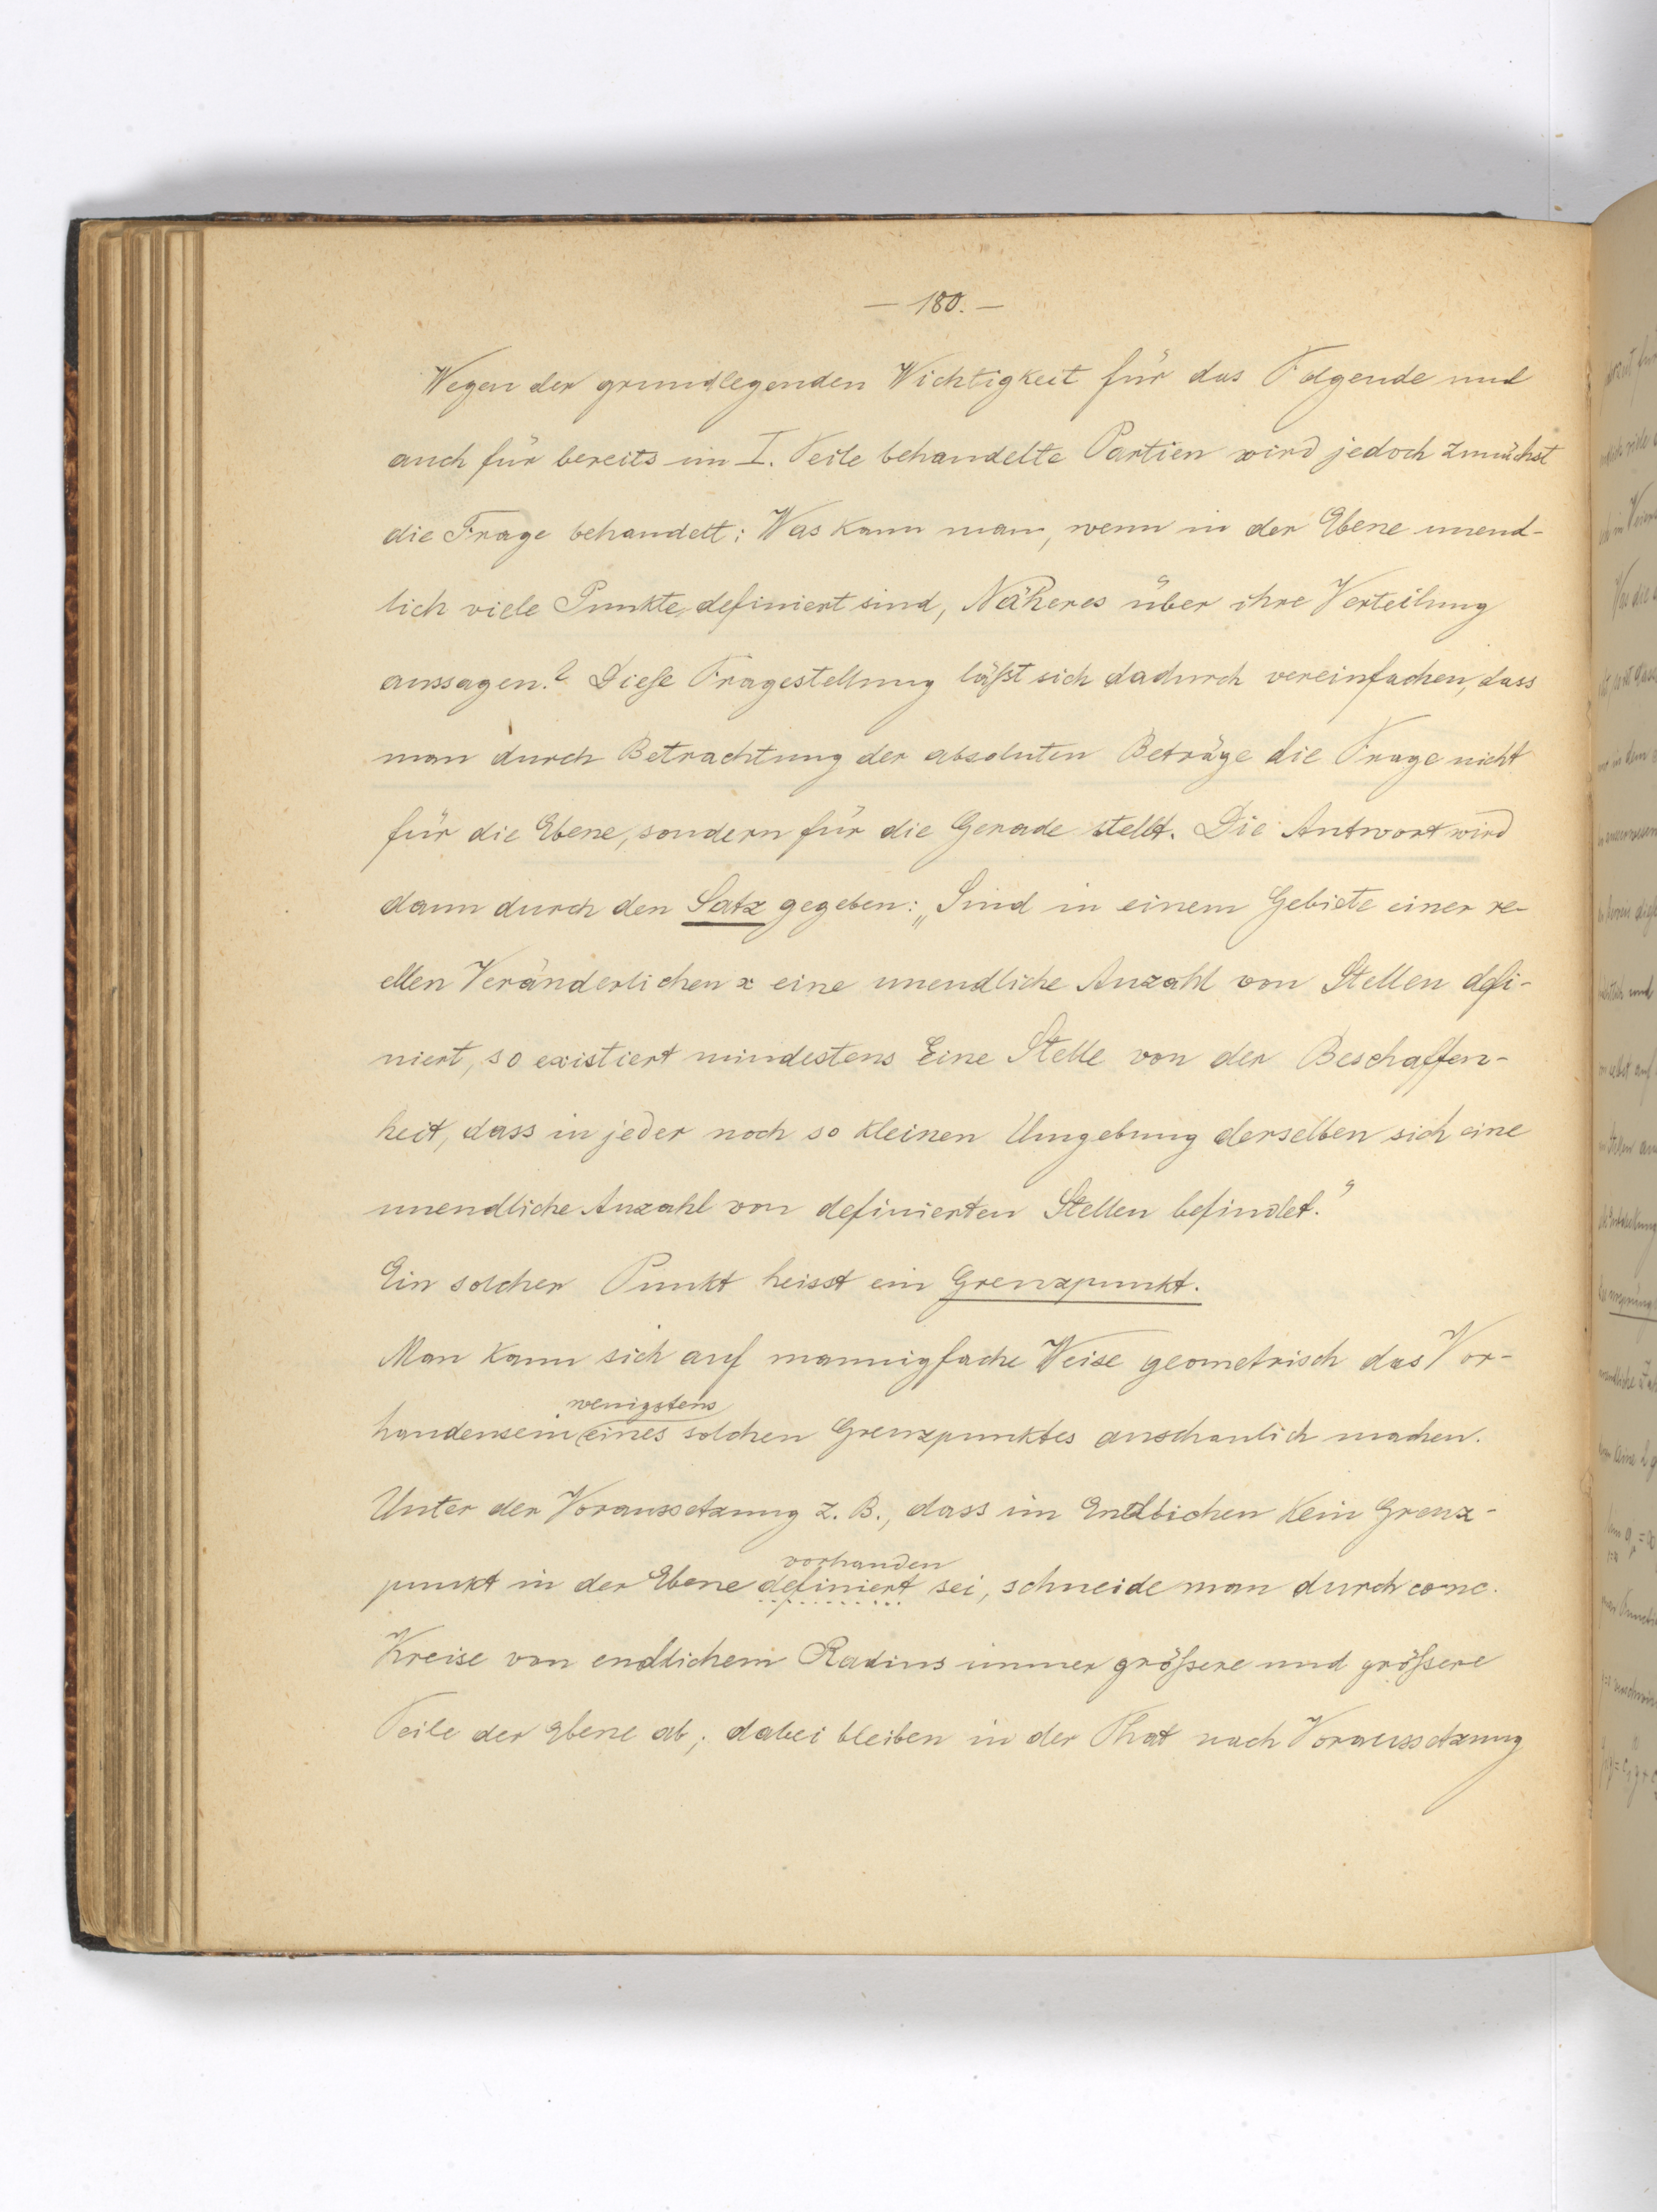 — 180. —
Wegen der grundlegenden Wichtigkeit für das Folgende und
auch für bereits im I. Teile behandelte Partien wird jedoch zunächst
die Frage behandelt: Was kann man, wenn in der Ebene unend-
lich viele Punkte definiert sind, Näheres über ihre Verteilung
aussagen? Dieße Fragestellung läßt sich dadurch vereinfachen, dass
man durch Betrachtung der absoluten Beträge die Frage nicht
für die Ebene, sondern für die Gerade stellt. Die Antwort wird
dann durch den Satz gegeben: „Sind in einem Gebiete einer re-
ellen Veränderlichen x eine unendliche Anzahl von Stellen defi-
niert, so existiert mindestens Eine Stelle von der Beschaffen-
heit, dass in jeder noch so kleinen Umgebung derselben sich eine
unendliche Anzahl von definierten Stellen befindet."
Ein solcher Punkt heisst ein Grenzpunkt.
Man kann sich auf mannigfache Weise geometrisch das Vor-
wenigstens
handensein eines solchen Grenzpunktes anschaulich machen.
Unter der Voraussetzung z. B., dass im Endlichen kein Grenz-
vorhanden
punkt in der Ebene definiert sei, schneide man durch conc.
Kreise von endlichem Radius immer größere und größere
Teile der Ebene ab; dabei bleiben in der That nach Voraussetzung